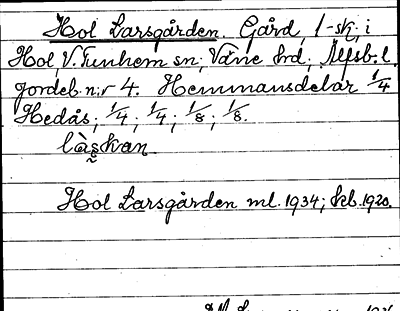 Hol Larsgården. Gård, 1-sk, i
Hol, V. Tunhem sn; Väne hd; Älfsb. l.
Jordeb. n:r 4. Hemmansdelar 1/4
Hedås; 1/4; 1/4; 1/8; 1/8.
làskan
Hol Larsgården ml. 1934; kb. 1920.